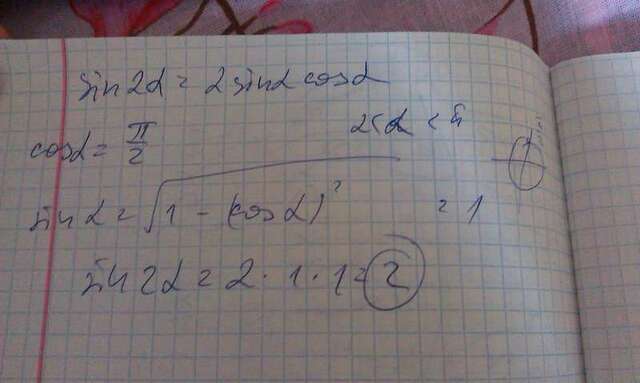 sin2α = 2 sinα cosα
cosα = π/2
sinα = √1 - (cosα)² = 1
sin2α = 2 · 1 · 1 = 2